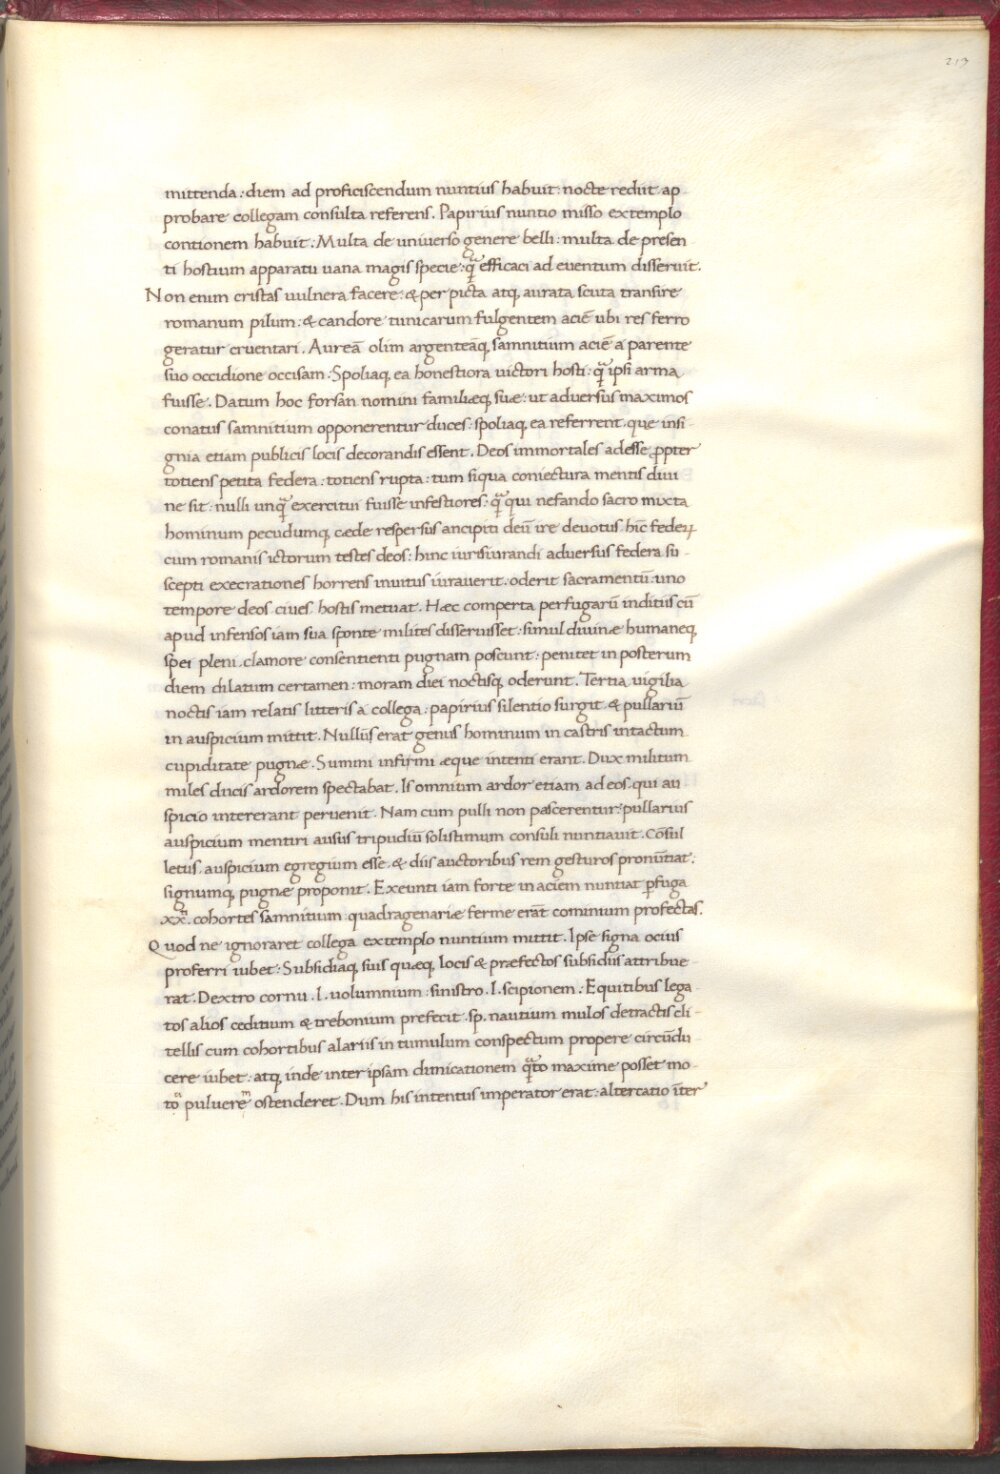 213
mittenda : diem ad proficiscendum nuntius habuit : nocte rediit ap
probare collegam consulta referens . Papirius nuntio misso extemplo
contionem habuit . Multa de universo genere belli : multa de presen
ti hostium apparatu uana magis specie : q̃ efficaci ad euentum disseruit .
Non enim cristas uulnera facere : & per picta atq; aurata scuta transire
romanum pilum : & candore tunicarum fulgentem aciē ubi res ferro
geratur cruentari . Aureā olim argenteāq; samnitium aciē a parente
suo occidione occisam : Spoliaq; ea honestiora uictori hosti : q̃ ipsi arma
fuisse . Datum hoc forsan nomini familiæq; suæ : ut aduersus maximos
conatus samnitium opponerentur duces : spoliaq; ea referrent . que insi-
gnia etiam publicis locis decorandis essent . Deos immortales adesse ꝓpter
totiens petita federa : totiens rupta : tum siqua coniectura mentis diui
ne sit : nulli unq̃ exercitui fuisse infestiores : q̃ qui nefando sacro mixta
hominum pecudumq; cæde respersus ancipiti deū ire deuotus hīc federꝝ
cum romanis ictorum testes deos : hinc iurisiurandi aduersus federa su-
scepti execrationes horrens inuitus iurauerit . oderit sacramentū : uno
tempore deos ciues hostis metuat . Hæc comperta perfugarū inditiis cū
apud infensos iam sua sponte milites disseruisset : simul diuinæ humaneq;
spei pleni . clamore consentienti pugnam poscunt : penitet in posterum
diem dilatum certamen : moram diei noctisq; oderunt . Tertia uigilia
noctis iam relatis litteris a collega : papirius silentio surgit & pullariū
in auspicium mittit . Nullus erat genus hominum in castris intactum
cupiditate pugnæ . Summi infirmi æque intenti erant . Dux militum
miles ducis ardorem spectabat . Is omnium ardor etiam ad eos qui au
spicio intererant peruenit . Nam cum pulli non pascerentur : pullarius
auspicium mentiri ausus tripudiū solistimum consuli nuntiauit . Cōsul
letus . auspicium egregium esse & diis auctoribus rem gesturos pronūtiat :
signumq; pugnæ proponit . Exeunti iam forte in aciem nuntiat ꝑfuga
xx . cohortes samnitium quadragenariæ ferme erāt cominium profectas .
Quod ne ignoraret collega extemplo nuntium mittit . Ipse signa ocius
proferri iubet : Subsidiaq; suis quæq; locis & præfectos subsidiis attribue
rat . Dextro cornu . l . uolumnium : sinistro . l . scipionem . Equitibus lega-
tos alios ceditium & trebonium prefecit . sp . nautium mulos detractis cli-
tellis cum cohortibus alariis in tumulum conspectum propere circūdu-
cere iubet . atq; inde inter ipsam dimicationem q̃to maxime posset mo-
to puluere ostenderet . Dum his intentus imperator erat : altercatio īter